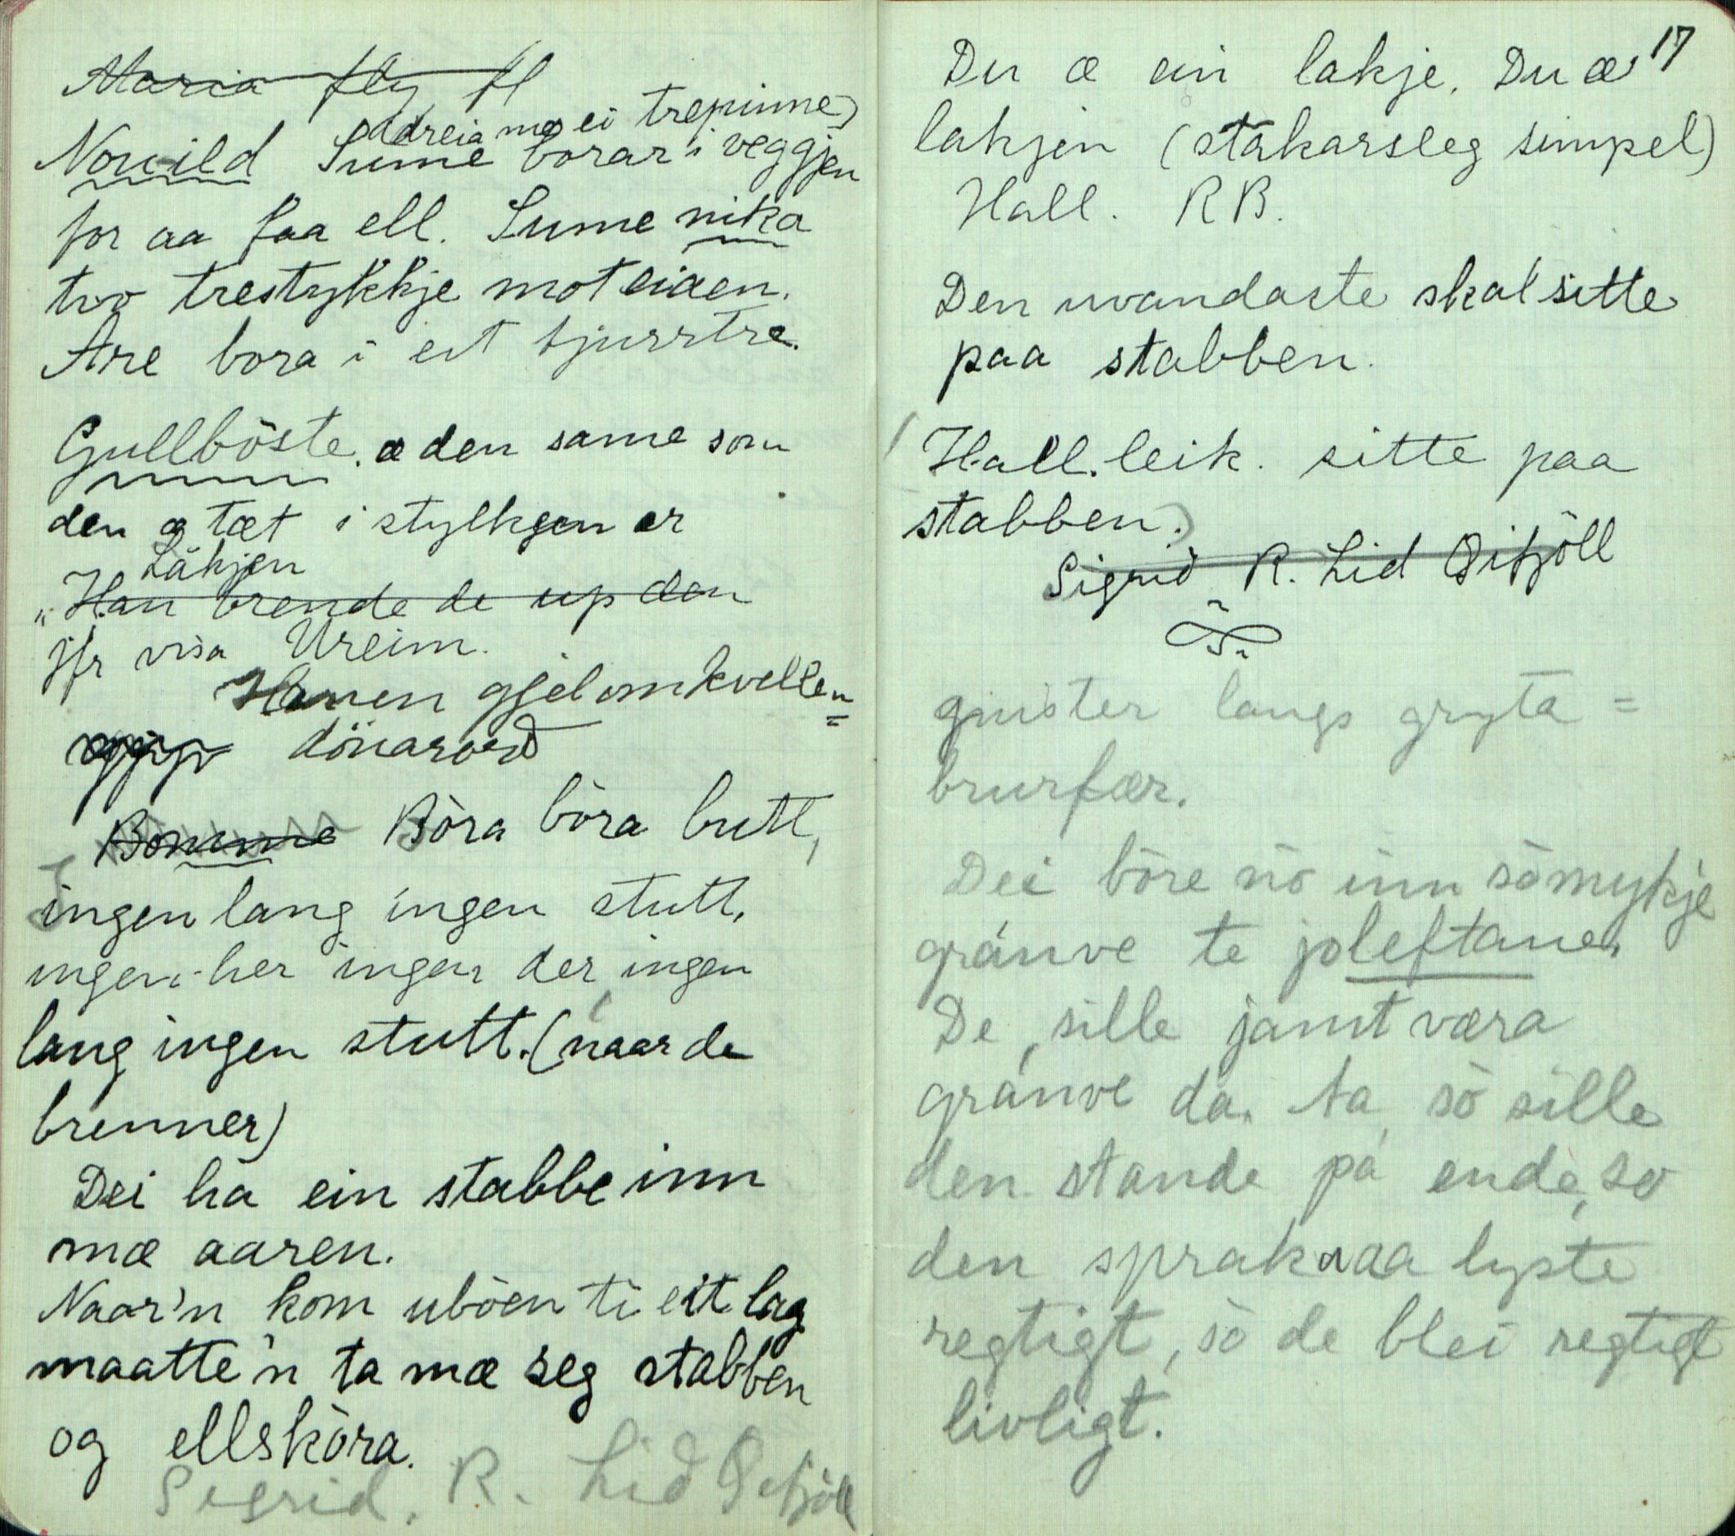 Maria fly fl
ddreia mæ ei trepinne)
Nouild Sume borar i veggjen
for aa faa ell. Sume nika
tvo trestykkje mot eiaen.
Are bora i eit tjurrtre.
Gullböste. æ den same som
den æ tæt i stylkjen er
Läkjen
"Han brende de up den
jfr visa Ureim.
Hanen gjel om kvellen
=
dönarord
Bomme Böra böra butt,
ingen lang ingen stutt,
ingen her ingen der, ingen
lang ingen stutt. (naar de
brenner)
Dei ha ein stabbe inn
mæ aaren.
Naar'n kom uböen ti eit lag
maatte'n ta mæ seg stabben
og ellsköra.
Sigrid. R. Lid Qifjöll
17
Du æ ein lakje. Du æ
lakjen (stakarsleg simpel)
Hall. R B.
Den uvandaste skal sitte
paa stabben.
Hall. leik. sitte paa
stabben.)
Sigrid R. Lid Qifjöll
gnister langs gryta =
brurfær.
Dei böre nö inn sömykje
gránve te joleftane.
De, sille jamt væra
gránve da. ta, sö sille
den stande pá ende, so
den sprak aa lyste
regtigt, sö de blei regtigt
livligt.